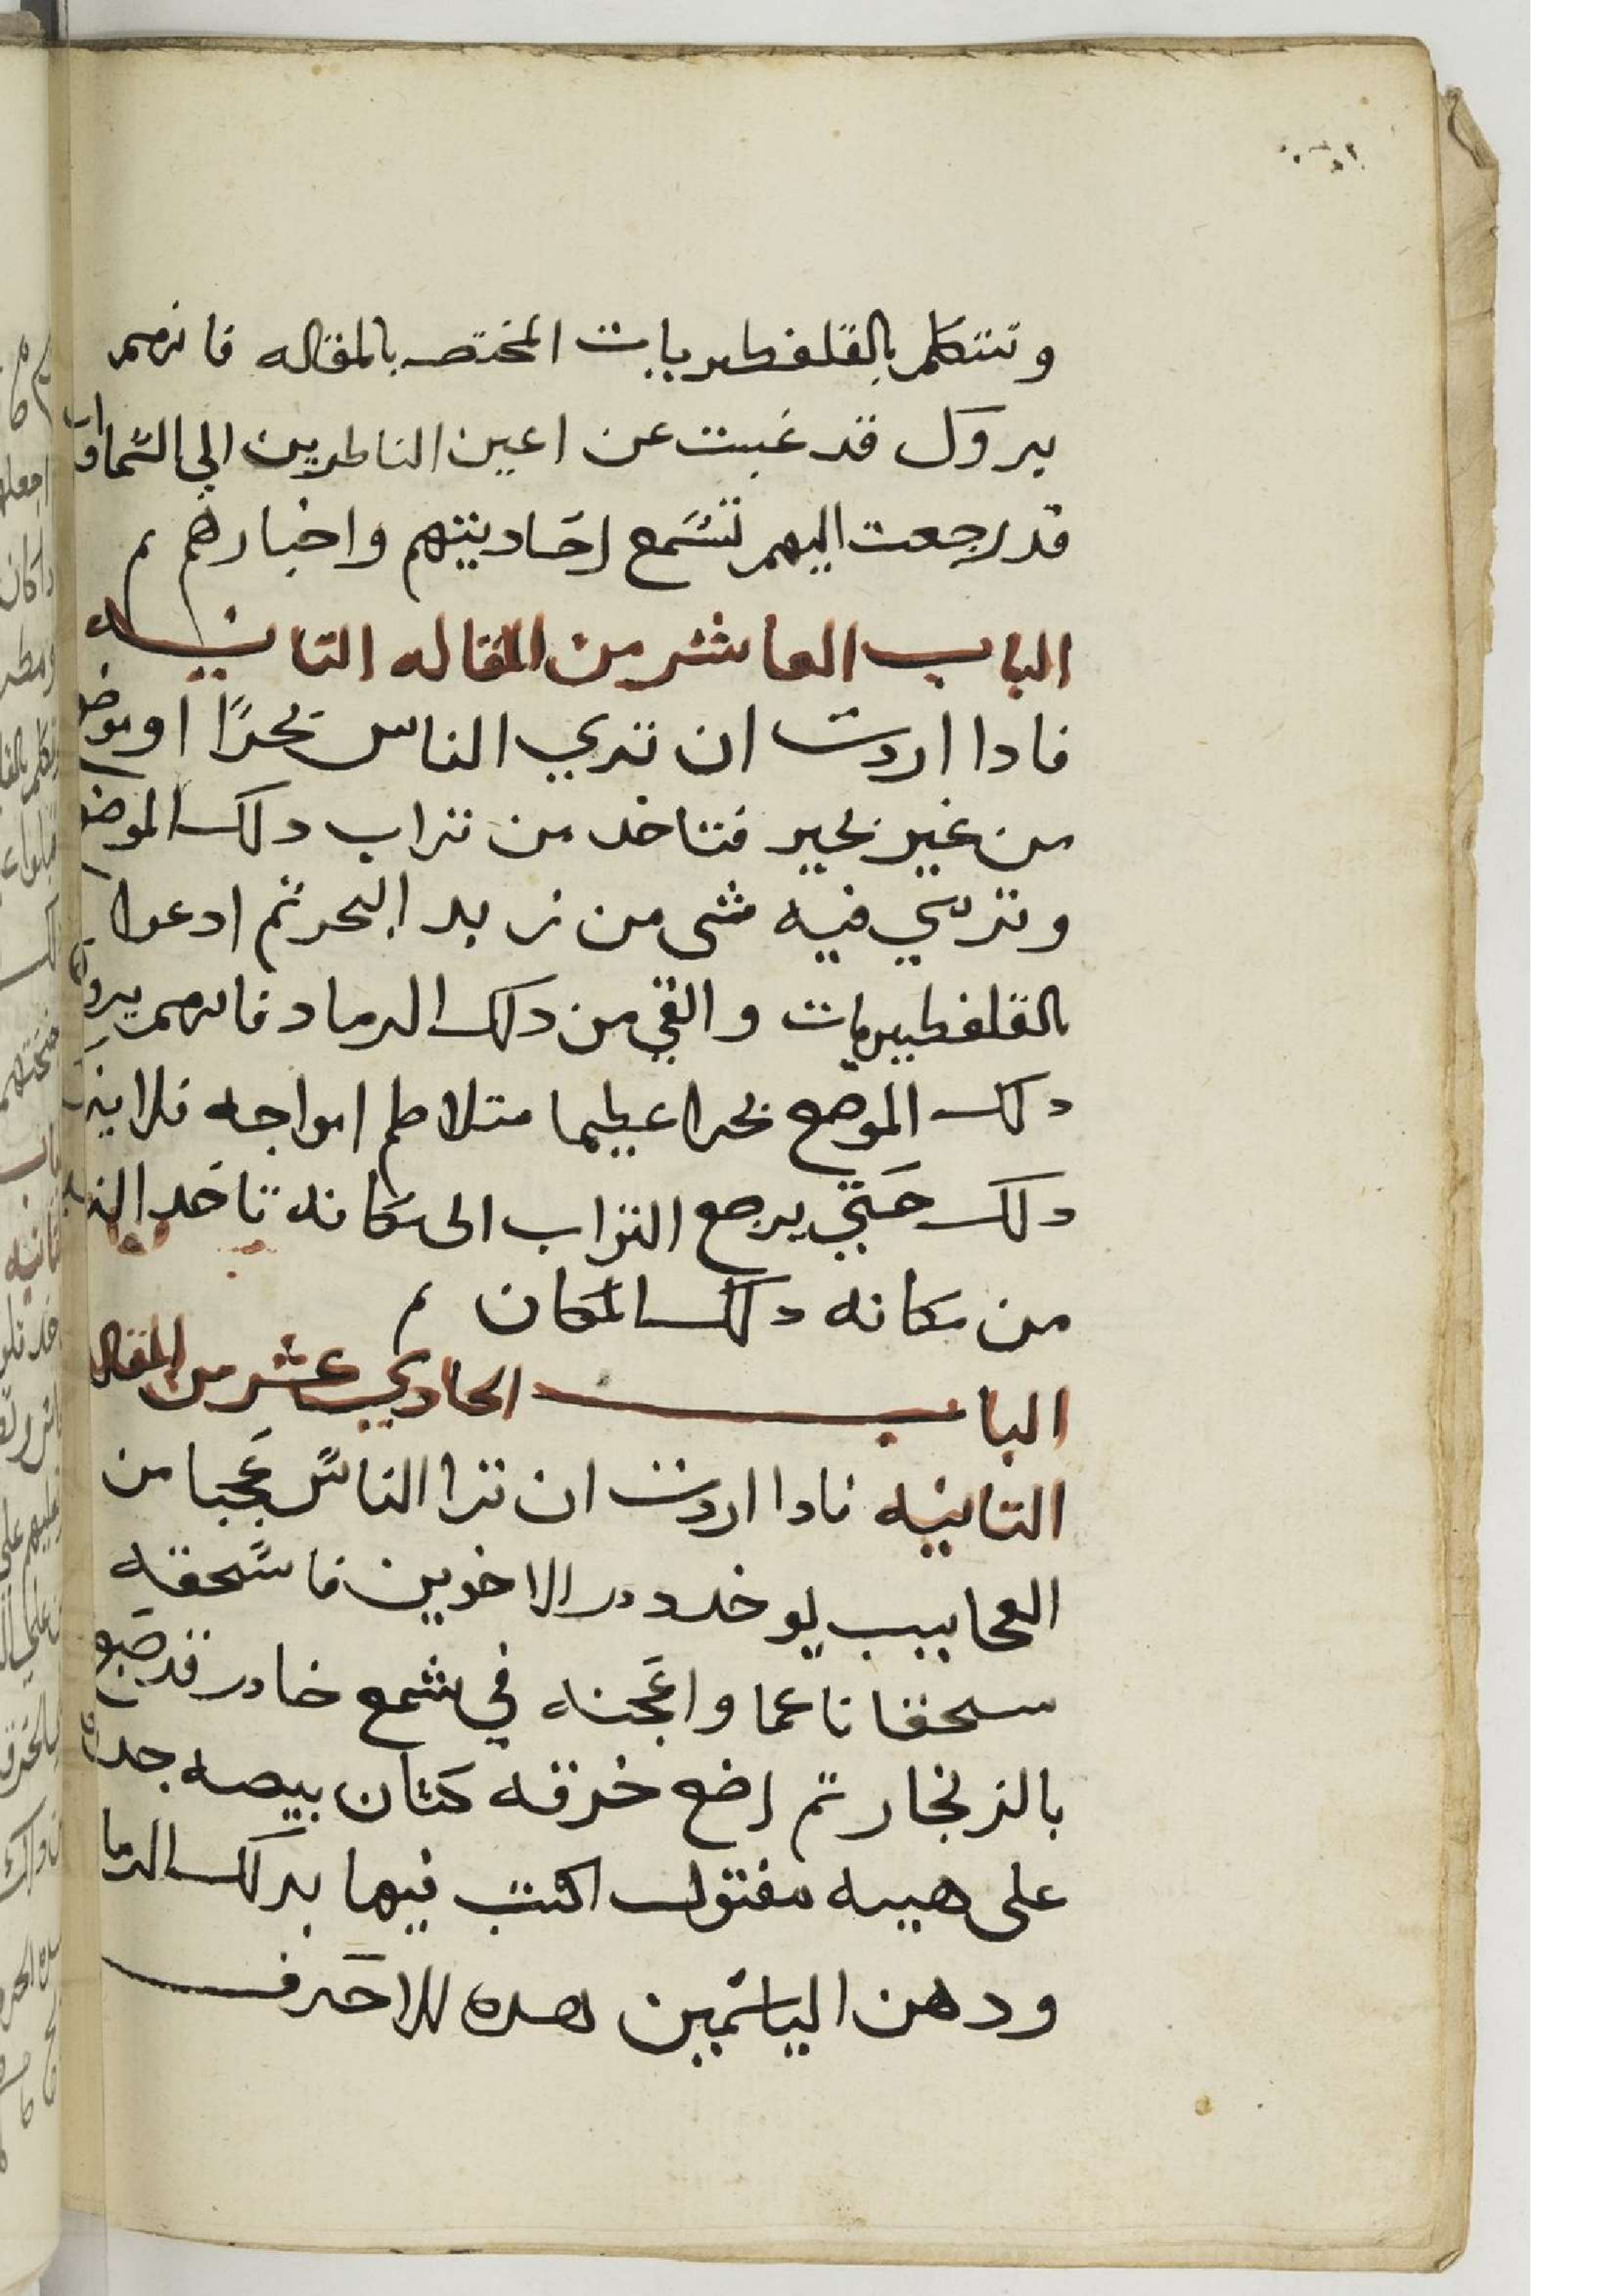 وتتكلم بالقلفطيريات المختصه بالمقاله فانهم
يروك قد غبت عن اعين الناطرين الي السما وانت
قدرجعت اليهم تسمع احاديتهم واخبارهم
الباب العاشر من المقاله التانيه
فادا اردت ان تري الناس بحرًا او موضع
من غير بحير فتاخد من تراب دلك الموضع
وترمي فيه شي من زبد البحر تم ادعوا
بالقلفطيريات والقي من دلك الرماد فانهم يروا
دلك الموضع بحرا عطيما متلاطم امواجه فلا
دلك حتي يرجع التراب الى مكانه تاخد
من مكانه دلك المكان
الباب الحادي عشر من المقاله
التانيه فادا اردت ان ترا الناس عجبا من
العجايب يوخد در الاخوين فاسحقه
سحقا ناعما واعجنه في شمع خادر قد صبغ
بالزنجار تم اضع خرقه كتان بيصه جدد
على هيه مفتول اكتب فيها بدلك الدما
ودهن الياسمين هده الاحرف